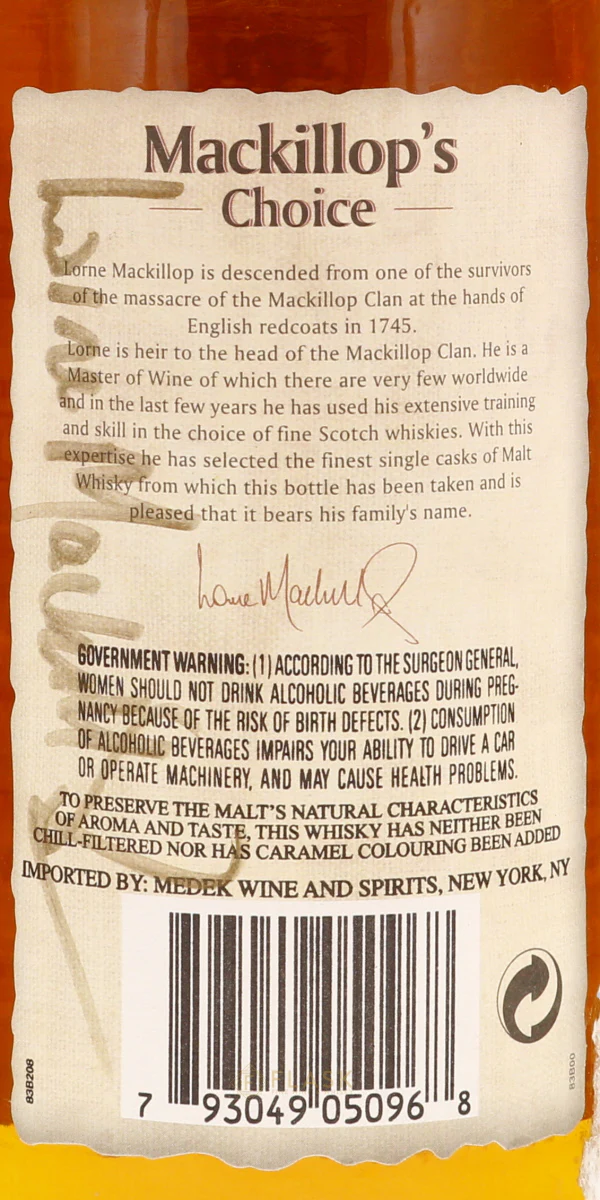 Mackillop's
Choice
Lorne Mackillop is descended from one of the survivors
of the massacre of the Mackillop Clan at the hands of
English redcoats in 1745.
Lorne is heir to the head of the Mackillop Clan. He is a
Master of Wine of which there are very few worldwide
and in the last few years he has used his extensive training
and skill in the choice of fine Scotch whiskies. With this
expertise he has selected the finest single casks of Malt
Whisky from which this bottle has been taken and is
pleased that it bears his family's name.
Lorne Mackillop
GOVERNMENT WARNING: (1) ACCORDING TO THE SURGEON GENERAL,
WOMEN SHOULD NOT DRINK ALCOHOLIC BEVERAGES DURING PREG-
NANCY BECAUSE OF THE RISK OF BIRTH DEFECTS. (2) CONSUMPTION
OF ALCOHOLIC BEVERAGES IMPAIRS YOUR ABILITY TO DRIVE A CAR
OR OPERATE MACHINERY, AND MAY CAUSE HEALTH PROBLEMS.
TO PRESERVE THE MALT'S NATURAL CHARACTERISTICS
OF AROMA AND TASTE, THIS WHISKY HAS NEITHER BEEN
CHILL-FILTERED NOR HAS CARAMEL COLOURING BEEN ADDED
IMPORTED BY: MEDEK WINE AND SPIRITS, NEW YORK, NY
7 93049 05096 8
83B208
83B00